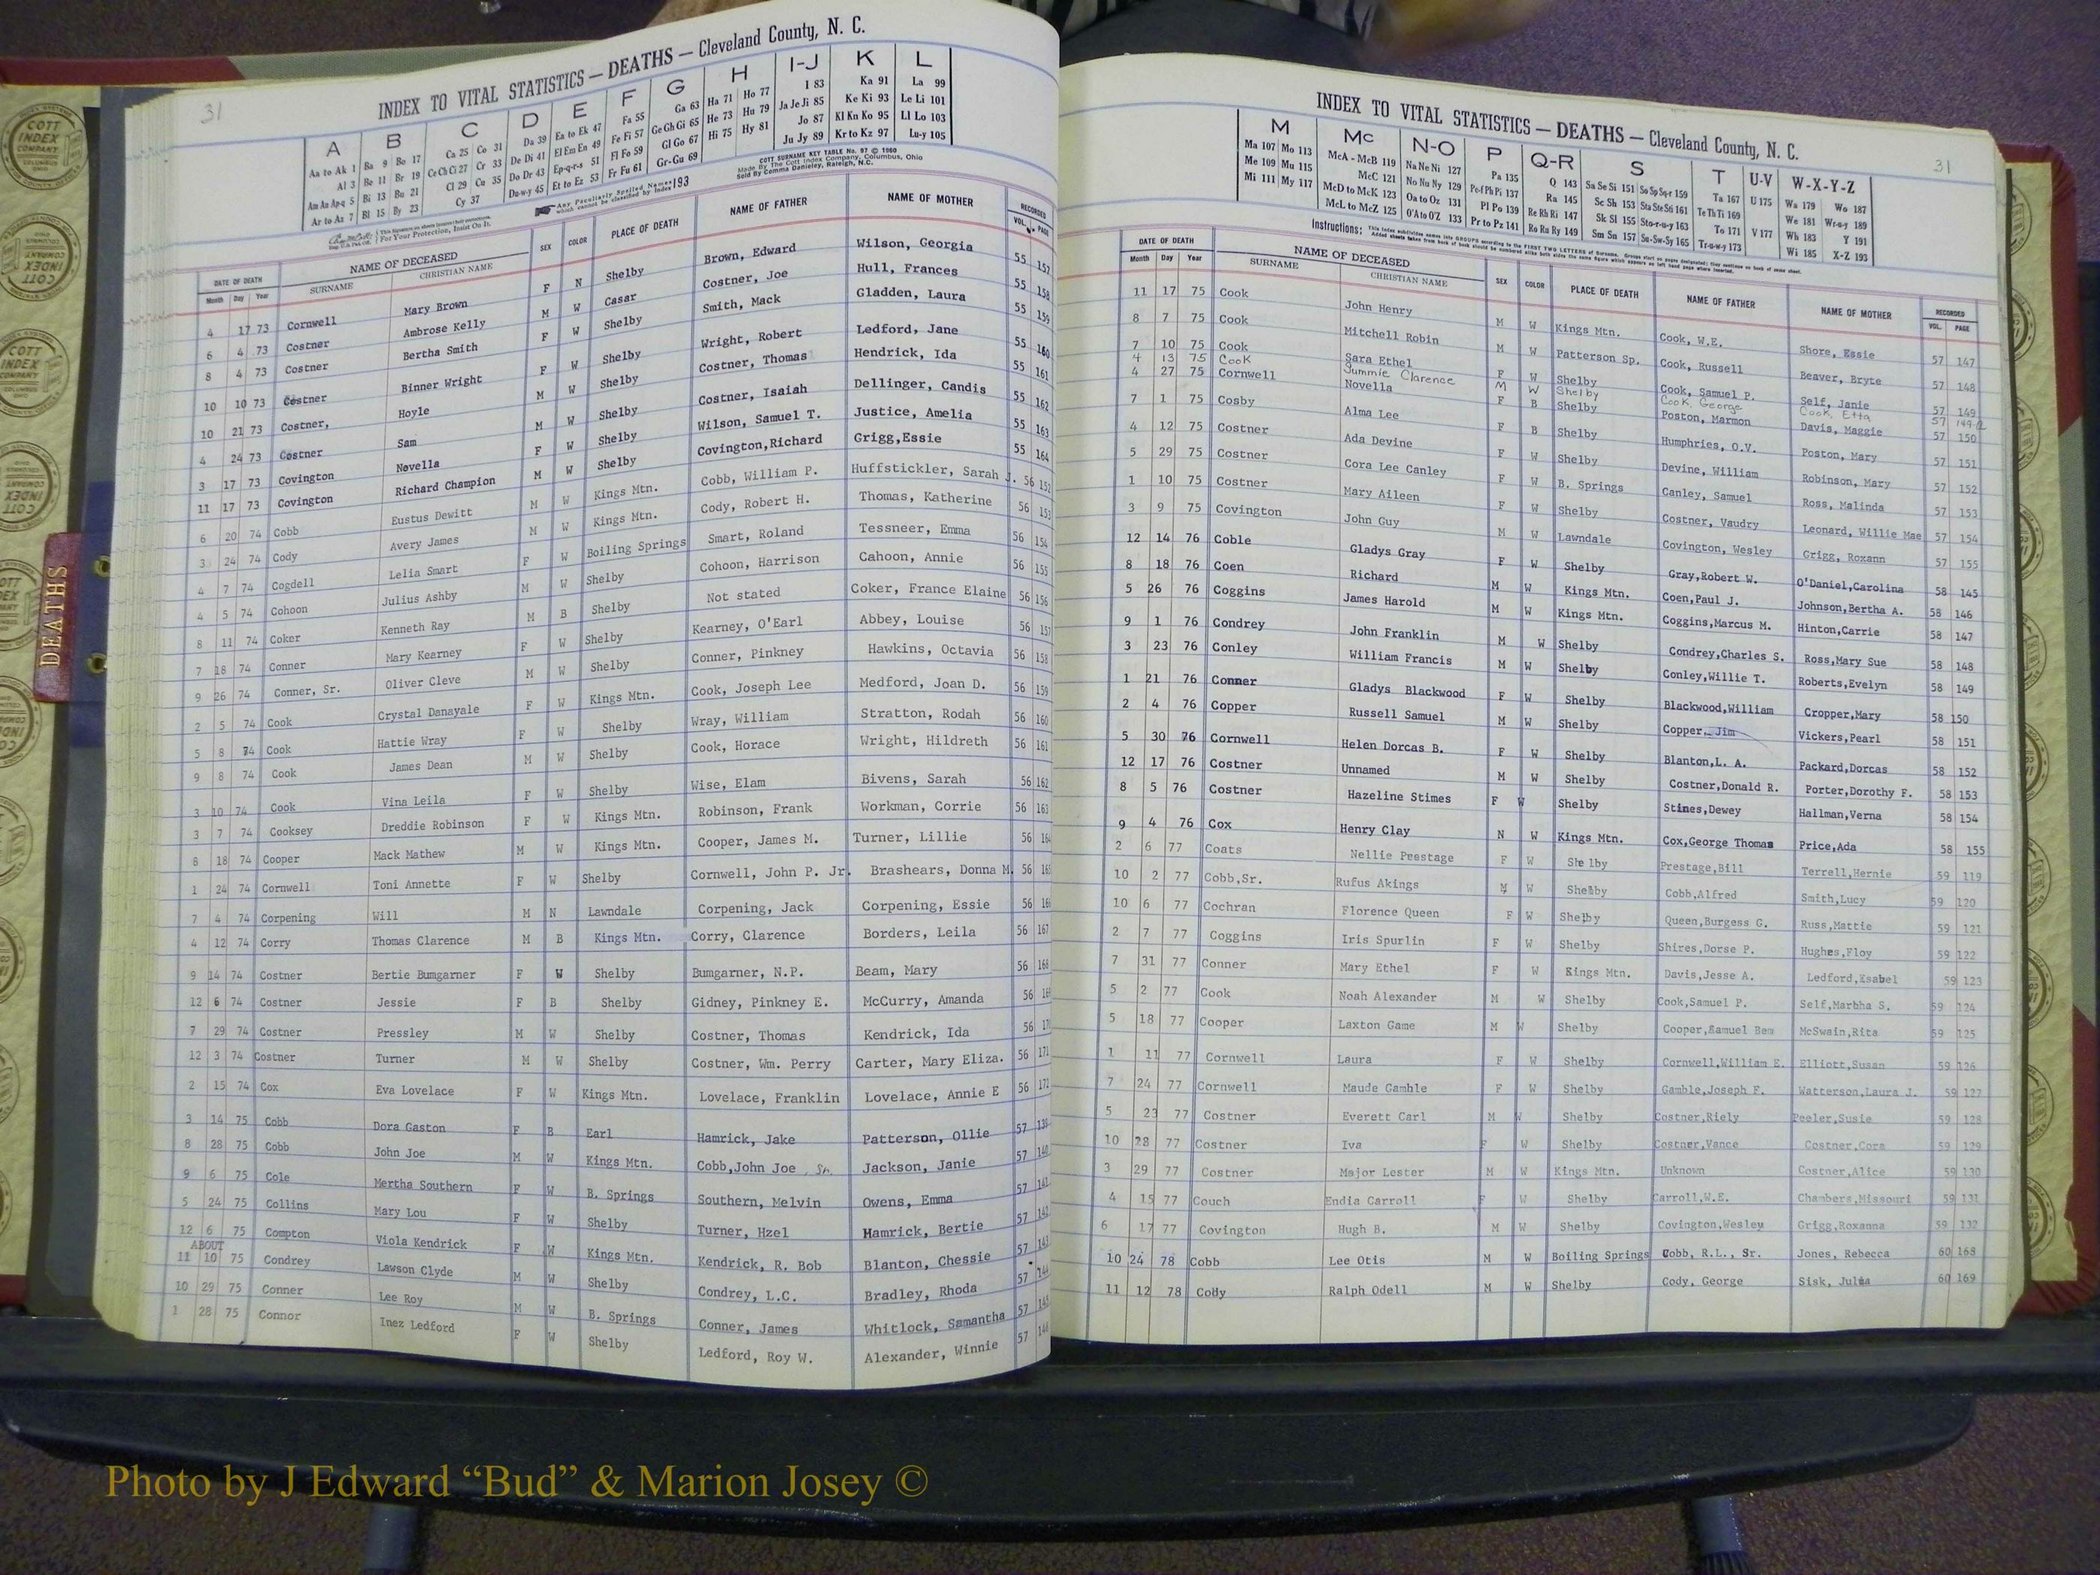 31
INDEX TO VITAL STATISTICS — DEATHS — Cleveland County, N. C.
A B C D E F G H I-J K L
Aa to Ak 1 Ba 9 Bo 17 Ca 25 Co 31 Da 39 Ea to Ek 47 Fa 55 Ga 63 Ha 71 Ho 77 I 83 Ka 91 La 99
Al 3 Be 11 Br 19 Ce Ch Ci 27 Cr 33 De Di 41 El Em En 49 Fe Fi 57 Ge Gh Gi 65 He 73 Hu 79 Ja Je Ji 85 Ke Ki 93 Le Li 101
Am An Ap-q 5 Bi 13 Bu 21 Cl 29 Cu 35 Do Dr 43 Ep-q-r-s 51 Fl Fo 59 Gl Go 67 Hi 75 Hy 81 Jo 87 Kl Kn Ko 95 Ll Lo 103
Ar to Az 7 Bl 15 By 23 Cy 37 Du-w-y 45 Et to Ez 53 Fr Fu 61 Gr-Gu 69 Ju Jy 89 Kr to Kz 97 Lu-y 105
Any Peculiarly Spelled Names which cannot be classified by Index 193
COTT SURNAME KEY TABLE No. 97 © 1960
Made By The Cott Index Company, Columbus, Ohio
Sold By Comma Danieley, Raleigh, N.C.
For Your Protection, Insist On It.
DATE OF DEATH NAME OF DECEASED SEX COLOR PLACE OF DEATH NAME OF FATHER NAME OF MOTHER RECORDED
Month Day Year SURNAME CHRISTIAN NAME VOL. PAGE
4 17 73 Cornwell Mary Brown F N Shelby Brown, Edward Wilson, Georgia 55 157
6 4 73 Costner Ambrose Kelly M W Casar Costner, Joe Hull, Frances 55 158
8 4 73 Costner Bertha Smith F W Shelby Smith, Mack Gladden, Laura 55 159
10 10 73 Costner Binner Wright F W Shelby Wright, Robert Ledford, Jane 55 160
10 21 73 Costner, Hoyle M W Shelby Costner, Thomas Hendrick, Ida 55 161
4 24 73 Costner Sam M W Shelby Costner, Isaiah Dellinger, Candis 55 162
3 17 73 Covington Novella F W Shelby Wilson, Samuel T. Justice, Amelia 55 163
11 17 73 Covington Richard Champion M W Shelby Covington,Richard Grigg,Essie 55 164
6 20 74 Cobb Eustus Dewitt M W Kings Mtn. Cobb, William P. Huffstickler, Sarah J. 56 152
3 24 74 Cody Avery James M W Kings Mtn. Cody, Robert H. Thomas, Katherine 56 153
4 7 74 Cogdell Lelia Smart F W Boiling Springs Smart, Roland Tessneer, Emma 56 154
4 5 74 Cohoon Julius Ashby M W Shelby Cohoon, Harrison Cahoon, Annie 56 155
8 11 74 Coker Kenneth Ray M B Shelby Not stated Coker, France Elaine 56 156
7 18 74 Conner Mary Kearney F W Shelby Kearney, O'Earl Abbey, Louise 56 157
9 26 74 Conner, Sr. Oliver Cleve M W Shelby Conner, Pinkney Hawkins, Octavia 56 158
2 5 74 Cook Crystal Danayale F W Kings Mtn. Cook, Joseph Lee Medford, Joan D. 56 159
5 8 74 Cook Hattie Wray F W Shelby Wray, William Stratton, Rodah 56 160
9 8 74 Cook James Dean M W Shelby Cook, Horace Wright, Hildreth 56 161
3 10 74 Cook Vina Leila F W Shelby Wise, Elam Bivens, Sarah 56 162
3 7 74 Cooksey Dreddie Robinson F W Kings Mtn. Robinson, Frank Workman, Corrie 56 163
8 18 74 Cooper Mack Mathew M W Kings Mtn. Cooper, James M. Turner, Lillie 56 164
1 24 74 Cornwell Toni Annette F W Shelby Cornwell, John P. Jr. Brashears, Donna M. 56 165
7 4 74 Corpening Will M N Lawndale Corpening, Jack Corpening, Essie 56 166
4 12 74 Corry Thomas Clarence M B Kings Mtn. Corry, Clarence Borders, Leila 56 167
9 14 74 Costner Bertie Bumgarner F W Shelby Bumgarner, N.P. Beam, Mary 56 168
12 6 74 Costner Jessie F B Shelby Gidney, Pinkney E. McCurry, Amanda 56
7 29 74 Costner Pressley M W Shelby Costner, Thomas Kendrick, Ida 56
12 3 74 Costner Turner M W Shelby Costner, Wm. Perry Carter, Mary Eliza. 56 171
2 15 74 Cox Eva Lovelace F W Kings Mtn. Lovelace, Franklin Lovelace, Annie E 56 172
3 14 75 Cobb Dora Gaston F B Earl Hamrick, Jake Patterson, Ollie 57 139
8 28 75 Cobb John Joe M W Kings Mtn. Cobb,John Joe , Sr. Jackson, Janie 57 140
9 6 75 Cole Mertha Southern F W B. Springs Southern, Melvin Owens, Emma 57 141
5 24 75 Collins Mary Lou F W Shelby Turner, Hzel Hamrick, Bertie 57 142
12 6 75 Compton Viola Kendrick F W Kings Mtn. Kendrick, R. Bob Blanton, Chessie 57 143
ABOUT
11 10 75 Condrey Lawson Clyde M W Shelby Condrey, L.C. Bradley, Rhoda 57 144
10 29 75 Conner Lee Roy M W B. Springs Conner, James Whitlock, Samantha 57 145
1 28 75 Connor Inez Ledford F W Shelby Ledford, Roy W. Alexander, Winnie 57 146
31
INDEX TO VITAL STATISTICS — DEATHS — Cleveland County, N. C.
M Mc N-O P Q-R S T U-V W-X-Y-Z
Ma 107 Mo 113 McA - McB 119 Na Ne Ni 127 Pa 135 Q 143 Sa Se Si 151 So Sp Sq-r 159 Ta 167 U 175 Wa 179 Wo 187
Me 109 Mu 115 McC 121 No Nu Ny 129 Pe-f Ph Pi 137 Ra 145 Sc Sh 153 Sta Ste Sti 161 Te Th Ti 169 We 181 Wr-u-y 189
Mi 111 My 117 McD to McK 123 Oa to Oz 131 Pl Po 139 Re Rh Ri 147 Sk Sl 155 Sto-r-u-y 163 To 171 V 177 Wh 183 Y 191
McL to McZ 125 O'A to O'Z 133 Pr to Pz 141 Ro Ru Ry 149 Sm Sn 157 Su-Sw-Sy 165 Tr-u-w-y 173 Wi 185 X-Z 193
Instructions: This index subdivides names into GROUPS according to the FIRST TWO LETTERS of Surname. Groups start on pages designated; they continue on back of same sheet.
DATE OF DEATH NAME OF DECEASED SEX COLOR PLACE OF DEATH NAME OF FATHER NAME OF MOTHER RECORDED
Month Day Year SURNAME CHRISTIAN NAME VOL. PAGE
11 17 75 Cook John Henry M W Kings Mtn. Cook, W.E. Shore, Essie 57 147
8 7 75 Cook Mitchell Robin M W Patterson Sp. Cook, Russell Beaver, Bryte 57 148
7 10 75 Cook Sara Ethel F W Shelby Cook, Samuel P. Self, Janie 57 149
4 13 75 Cook Jummie Clarence M W Shelby Cook, George Cook, Etta 57 149-A
4 27 75 Cornwell Novella F B Shelby Poston, Marmon Davis, Maggie 57 150
7 1 75 Cosby Alma Lee F B Shelby Humphries, O.V. Poston, Mary 57 151
4 12 75 Costner Ada Devine F W Shelby Devine, William Robinson, Mary 57 152
5 29 75 Costner Cora Lee Canley F W B. Springs Canley, Samuel Ross, Malinda 57 153
1 10 75 Costner Mary Aileen F W Shelby Costner, Vaudry Leonard, Willie Mae 57 154
3 9 75 Covington John Guy M W Lawndale Covington, Wesley Grigg, Roxann 57 155
12 14 76 Coble Gladys Gray F W Shelby Gray,Robert W. O'Daniel,Carolina 58 145
8 18 76 Coen Richard M W Kings Mtn. Coen,Paul J. Johnson,Bertha A. 58 146
5 26 76 Coggins James Harold M W Kings Mtn. Coggins,Marcus M. Hinton,Carrie 58 147
9 1 76 Condrey John Franklin M W Shelby Condrey,Charles S. Ross,Mary Sue 58 148
3 23 76 Conley William Francis M W Shelby Conley,Willie T. Roberts,Evelyn 58 149
1 21 76 Conner Gladys Blackwood F W Shelby Blackwood,William Cropper,Mary 58 150
2 4 76 Copper Russell Samuel M W Shelby Copper, Jim Vickers,Pearl 58 151
5 30 76 Cornwell Helen Dorcas B. F W Shelby Blanton,L. A. Packard,Dorcas 58 152
12 17 76 Costner Unnamed M W Shelby Costner,Donald R. Porter,Dorothy F. 58 153
8 5 76 Costner Hazeline Stimes F W Shelby Stines,Dewey Hallman,Verna 58 154
9 4 76 Cox Henry Clay N W Kings Mtn. Cox,George Thomas Price,Ada 58 155
2 6 77 Coats Nellie Prestage F W Shelby Prestage,Bill Terrell,Hernie 59 119
10 2 77 Cobb,Sr. Rufus Akings M W Shelby Cobb,Alfred Smith,Lucy 59 120
10 6 77 Cochran Florence Queen F W Shelby Queen,Burgess G. Russ,Mattie 59 121
2 7 77 Coggins Iris Spurlin F W Shelby Shires,Dorse P. Hughes,Floy 59 122
7 31 77 Conner Mary Ethel F W Kings Mtn. Davis,Jesse A. Ledford,Esabel 59 123
5 2 77 Cook Noah Alexander M W Shelby Cook,Samuel P. Self,Martha S. 59 124
5 18 77 Cooper Laxton Game M W Shelby Cooper,Samuel Bem McSwain,Rita 59 125
1 11 77 Cornwell Laura F W Shelby Cornwell,William E. Elliott,Susan 59 126
7 24 77 Cornwell Maude Gamble F W Shelby Gamble,Joseph F. Watterson,Laura J. 59 127
5 23 77 Costner Everett Carl M W Shelby Costner,Riely Peeler,Susie 59 128
10 28 77 Costner Iva F W Shelby Costner,Vance Costner,Cora 59 129
3 29 77 Costner Major Lester M W Kings Mtn. Unknown Costner,Alice 59 130
4 15 77 Couch Endia Carroll F W Shelby Carroll,W.E. Chambers,Missouri 59 131
6 17 77 Covington Hugh B. M W Shelby Covington,Wesley Grigg,Roxanna 59 132
10 24 78 Cobb Lee Otis M W Boiling Springs Cobb, R.L., Sr. Jones, Rebecca 60 168
11 12 78 Cody Ralph Odell M W Shelby Cody, George Sisk, Julia 60 169
DEATHS
COTT INDEX COMPANY
Photo by J Edward “Bud” & Marion Josey ©